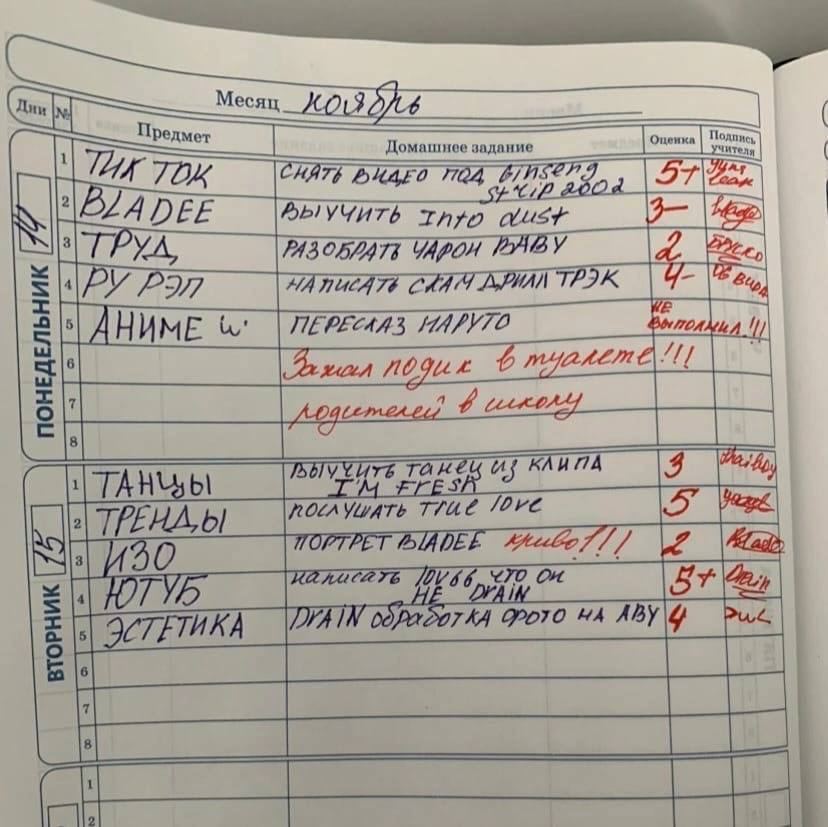 Месяц ноябрь
Дни № Предмет Домашнее задание Оценка Подпись учителя
ПОНЕДЕЛЬНИК 14
1 ТИК ТОК СНЯТЬ ВИДЕО ПОД Ginseng Strip 2002 5+ yung lean
2 BLADEE ВЫУЧИТЬ Into dust 3-
3 ТРУД РАЗОБРАТЬ ЧАРОН BABY 2
4 РУ РЭП НАПИСАТЬ СКАМ ДРИЛЛ ТРЭК 4-
5 АНИМЕ ПЕРЕСКАЗ НАРУТО НЕ ВЫПОЛНИЛ!!!
6 Зажал подик в туалете!!!
7 родителей в школу
8
ВТОРНИК 15
1 ТАНЦЫ ВЫУЧИТЬ танец из КЛИПА I'M FRESH 3 thaiboy
2 ТРЕНДЫ ПОСЛУШАТЬ true love 5
3 ИЗО ПОРТРЕТ BLADEE криво!!! 2 Bladee
4 ЮТУБ написать lov66 что он НЕ DRAIN 5+ Drain
5 ЭСТЕТИКА DRAIN обработка фото НА АВУ 4
6
7
8
1
2